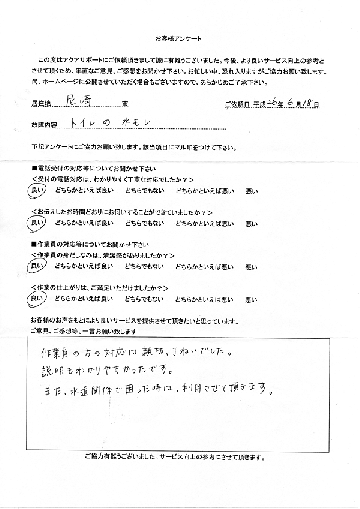 お客様アンケート
この度はアクアサポートにご依頼頂きまして誠に有難うございました。今後、より良いサービス向上の参考と
させて頂くため、率直なご意見、ご感想をお聞かせ下さい。お忙しい中、恐れ入りますがご協力お願い致します。
尚、ホームページに公開させていただく場合もございますので、あらかじめご了承下さい。
居住地 尼崎 市 ご依頼日 平成 年 6月18日
依頼内容 トイレの水モレ
下記アンケートにご協力お願い致します。該当項目にマル印をつけて下さい。
■電話受付の対応等についてお聞かせ下さい
＜受付の電話対応は、わかりやすく丁寧な対応でしたか？＞
良い どちらかといえば良い どちらでもない どちらかといえば悪い 悪い
＜お伝えしたお時間どおりにお伺いすることができていましたか？＞
良い どちらかといえば良い どちらでもない どちらかといえば悪い 悪い
■作業員の対応等についてお聞かせ下さい
＜作業員の身だしなみは、清潔感がありましたか？＞
良い どちらかといえば良い どちらでもない どちらかといえば悪い 悪い
＜作業の仕上がりは、ご満足いただけましたか？＞
良い どちらかといえば良い どちらでもない どちらかといえば悪い 悪い
お客様のお声をもとにより良いサービスを提供させて頂きたいと思っています。
ご意見、ご感想等、一言お願い致します
作業員の方の対応は親切、ていねいでした。
説明もわかりやすかったです。
また、水道関係で困った時は、利用させて頂きます。
ご協力有難うございました サービス向上の参考にさせて頂きます。